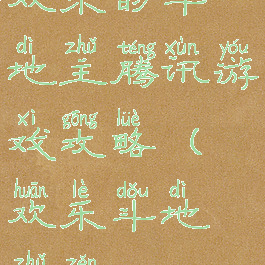 欢乐的斗
dì zhǔ téng xùn yóu
地主腾讯游
xì gōng lüè
戏攻略(
huān lè dǒu dì
欢乐斗地
zhǔ zěn